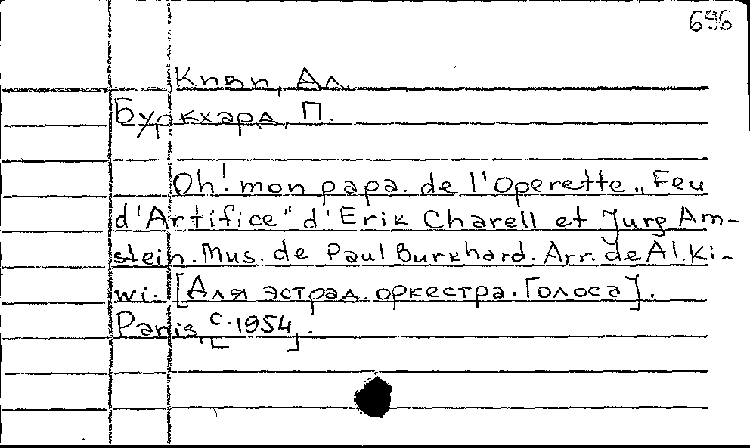 696
Киви, Ал.
Буркхард, П.
Oh! mon papa. de l'Operette „Feu
d'Artifice" d'Erik Charell et Jurg Am-
stein. Mus. de Paul Burkhard. Arr. de Al. Ki-
wi. [Для эстрад. оркестра. Голоса].
Paris, [c. 1954].